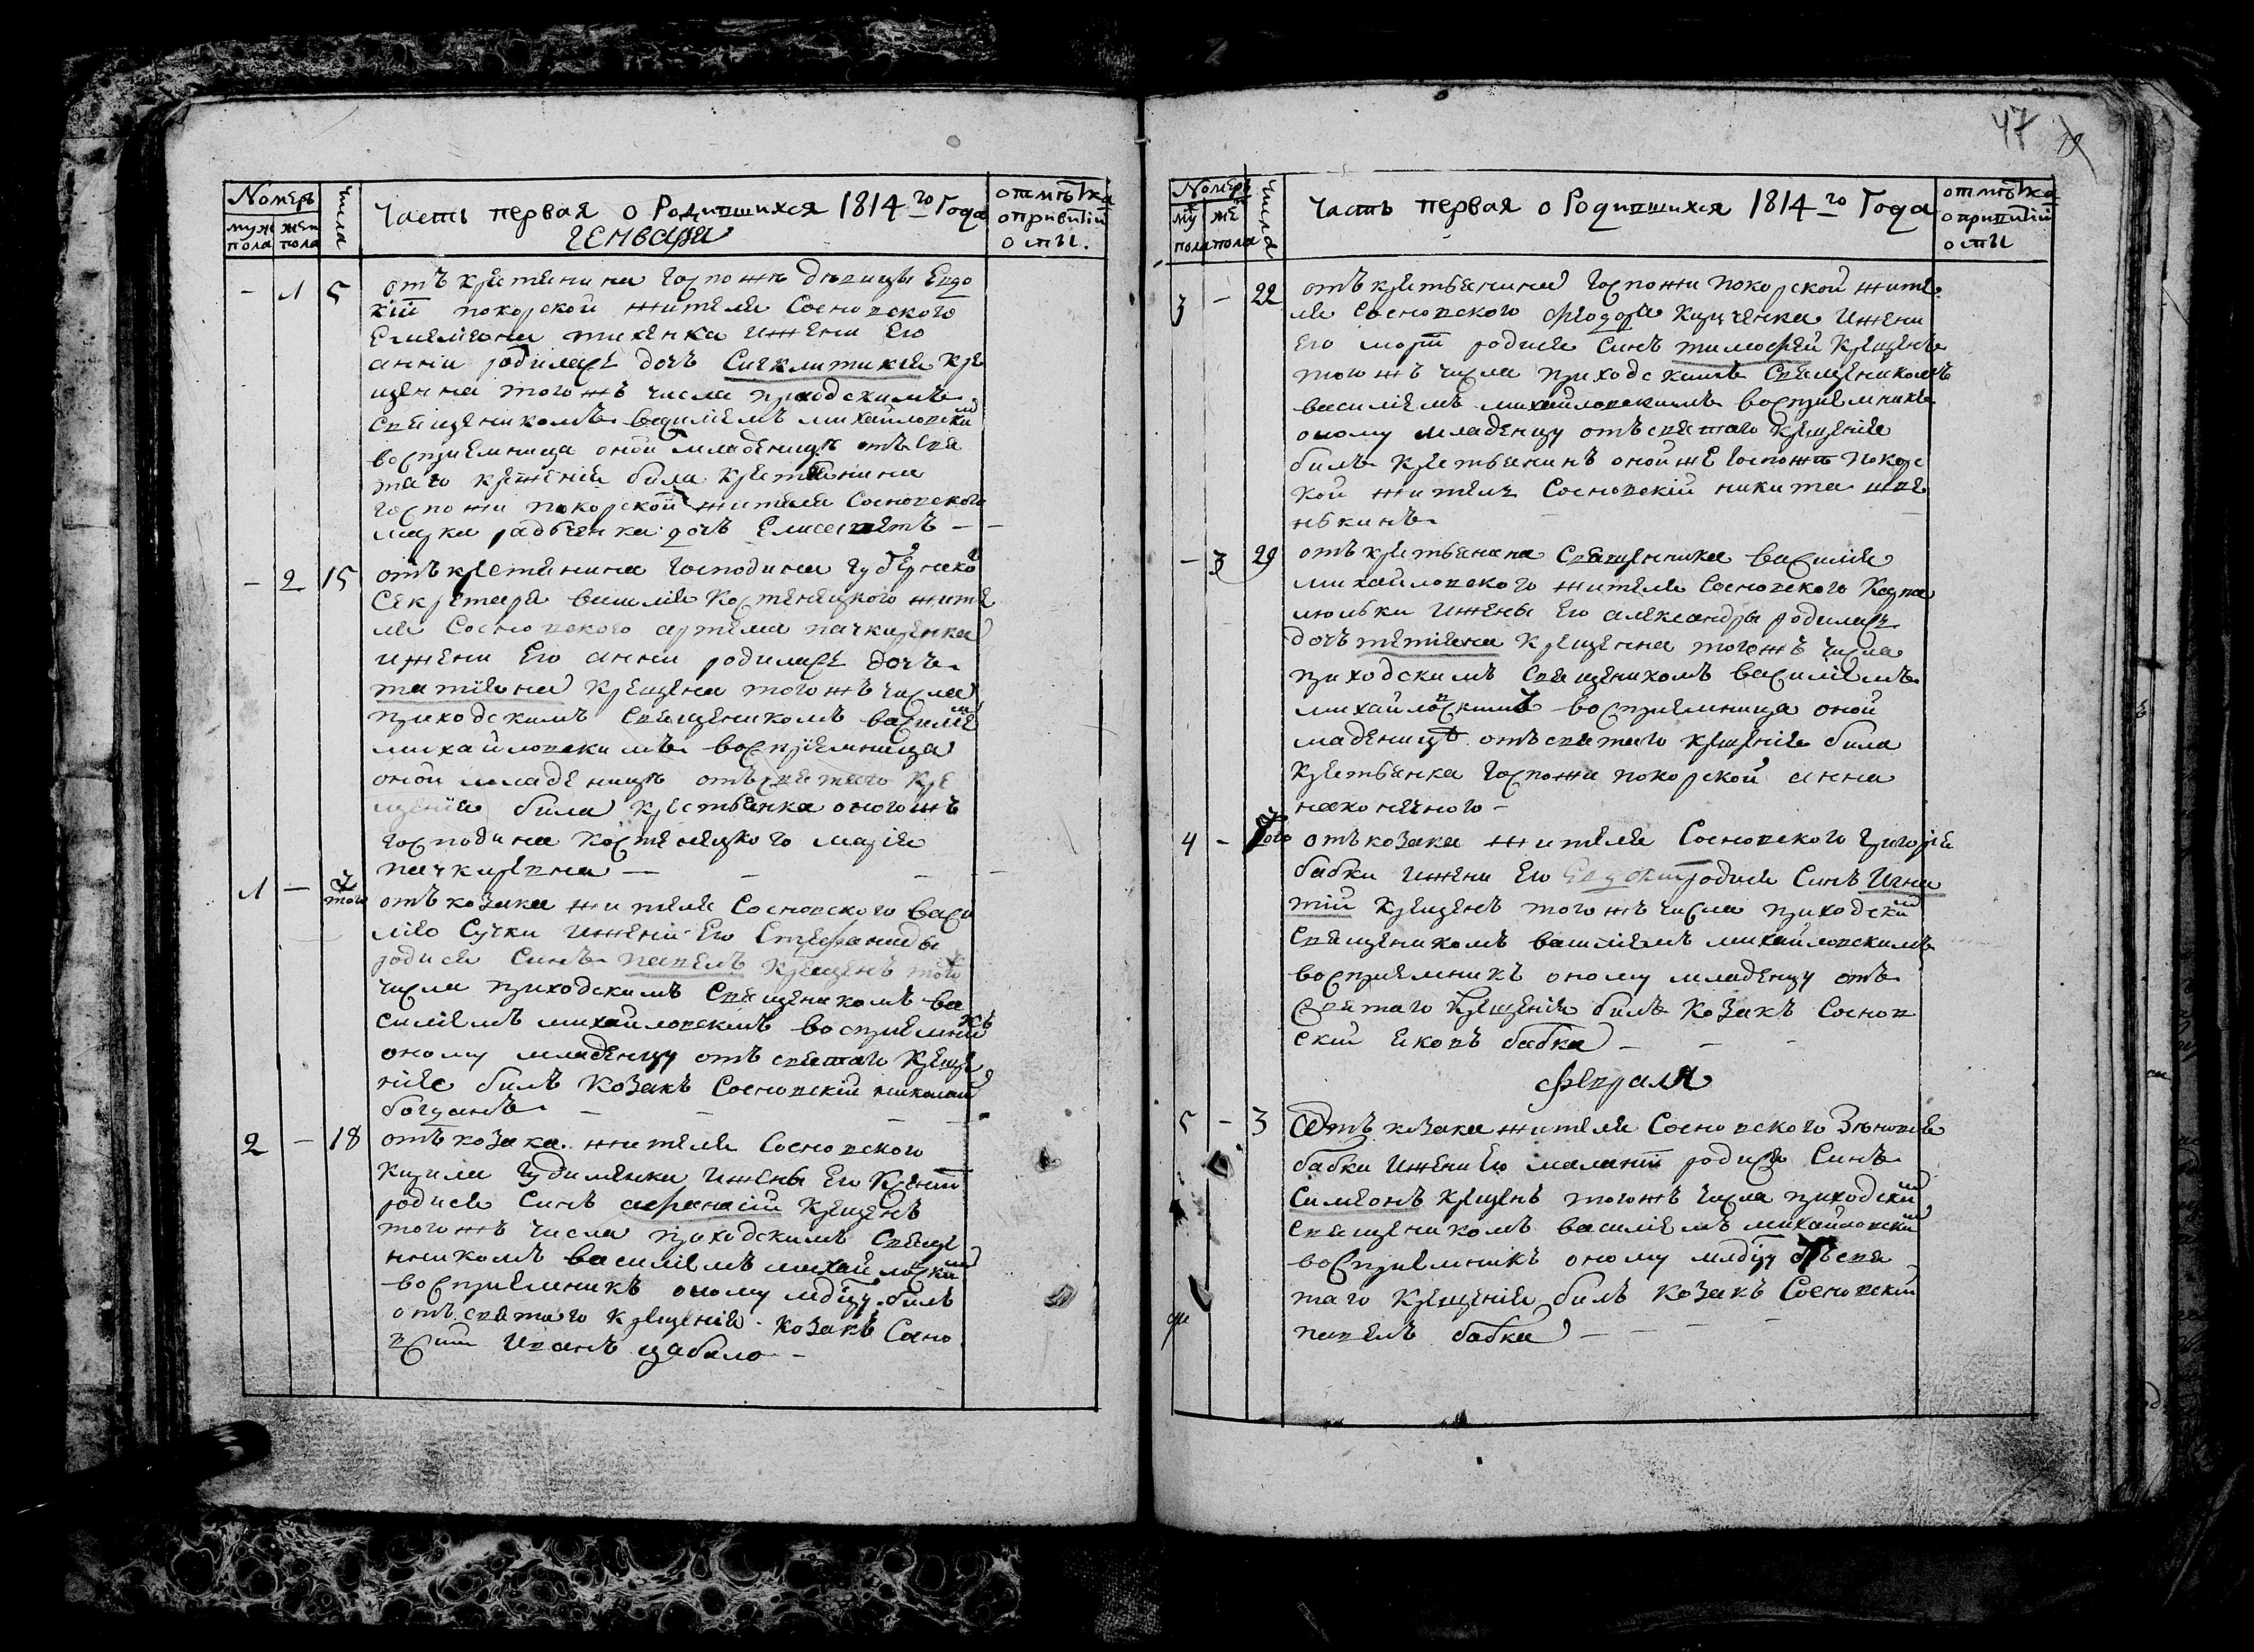 Номеръ
Числа
муж жен
пола пола
Часть первая о Родившихся 1814го Года
Генваря
отмѣтка
опривитіи
оспы.
- 1 5 отъ крестянина Госпожѣ дѣвицы Евдо
кіи покорской жителя Сосновского
Емеліяна тихенка ижени Его
анни родилась дочъ Сигклитикія кре
щенна тогожъ числа приходскимъ
Священикомъ василіемъ михайловским
воспріемница оной младеницѣ отъ Свя
таго крещенія била крестянина
Госпожи покорской жителя Сосновского
марка радченка дочъ Елисаветъ
- 2 15 отъ крестянина Господина губернско
Секретаря василія Костенецкого жите
ля Сосновского артема пачкиренка
ижени Его анни родилась дочъ
татіяна крещена тогожъ числа
приходскимъ Священикомъ василіем
михайловскимъ воспріемница
оной младеницѣ отъ святаго кре
щенія била крестьянка оногожъ
господина костенецкого марія
пачкиревна
1 - того отъ козака жителя Сосновского васи
лія Сучки иженіи Его Стефаниды
родися Синъ павелъ крещенъ тогож
числа приходскимъ Священикомъ ва
силіемъ михайловскимъ воспріемникъ
оному младенцу отъ святаго креще
нія билъ козакъ Сосновскій николай
богданъ
2 - 18 отъ козака жителя Сосновского
кирила Гудименка ижены Его Ксеніи
родися Синъ афанасій крещенъ
тогожъ числа приходскимъ Свяще
нникомъ василіемъ михайловским
воспріемникъ оному мдцу билъ
отъ святаго крещенія козакъ Сосно
вский Иванъ цабало
47
Номеръ
Числа
муж жен
пола пола
Часть первая о Родившихся 1814го Года
отмѣтка
опривитіи
оспы
3 - 22 отъ крестьянина Госпожи покорской жите
ля Сосновского феодора Кирченка ижени
Его марѳи родися Синъ тимофей крещенъ
тогожъ числа приходскимъ Священикомъ
василіемъ михайловскимъ воспріемникъ
оному младенцу отъ святаго крещенія
билъ крестьянинъ онойже Госпожѣ покорс
кой жителъ Сосновскій никита
- 3 29 отъ крестьянина Священника василія
михайловского жителя Сосновского Карпа
люльки ижены Его александры родилась
дочъ тетіяна крещенна тогожъ числа
приходскимъ Священикомъ василіемъ
михайловскимъ воспріемница оной
младеницѣ отъ святаго крещенія била
крестьянка Госпожи покорской анна
наконечного
4 - того отъ козака жителя Сосновского григорія
бабки ижени Его Евдокіи родися Синъ Игна
тій крещенъ тогожъ числа приходским
Священикомъ василіемъ михайловскимъ
воспріемникъ оному младенцу отъ
Святаго крещенія билъ козакъ Соснов
скій яковъ бабка
февраля
5 - 3 Отъ козака жителя Сосновского Зѣновія
бабки ижени Его маланіи родися Синъ
Симеонъ крещенъ тогожъ числа приходским
священикомъ василіемъ михайловским
воспріемникъ оному млдцу отъ свя
таго крещенія билъ козакъ Сосновскій
павелъ бабка